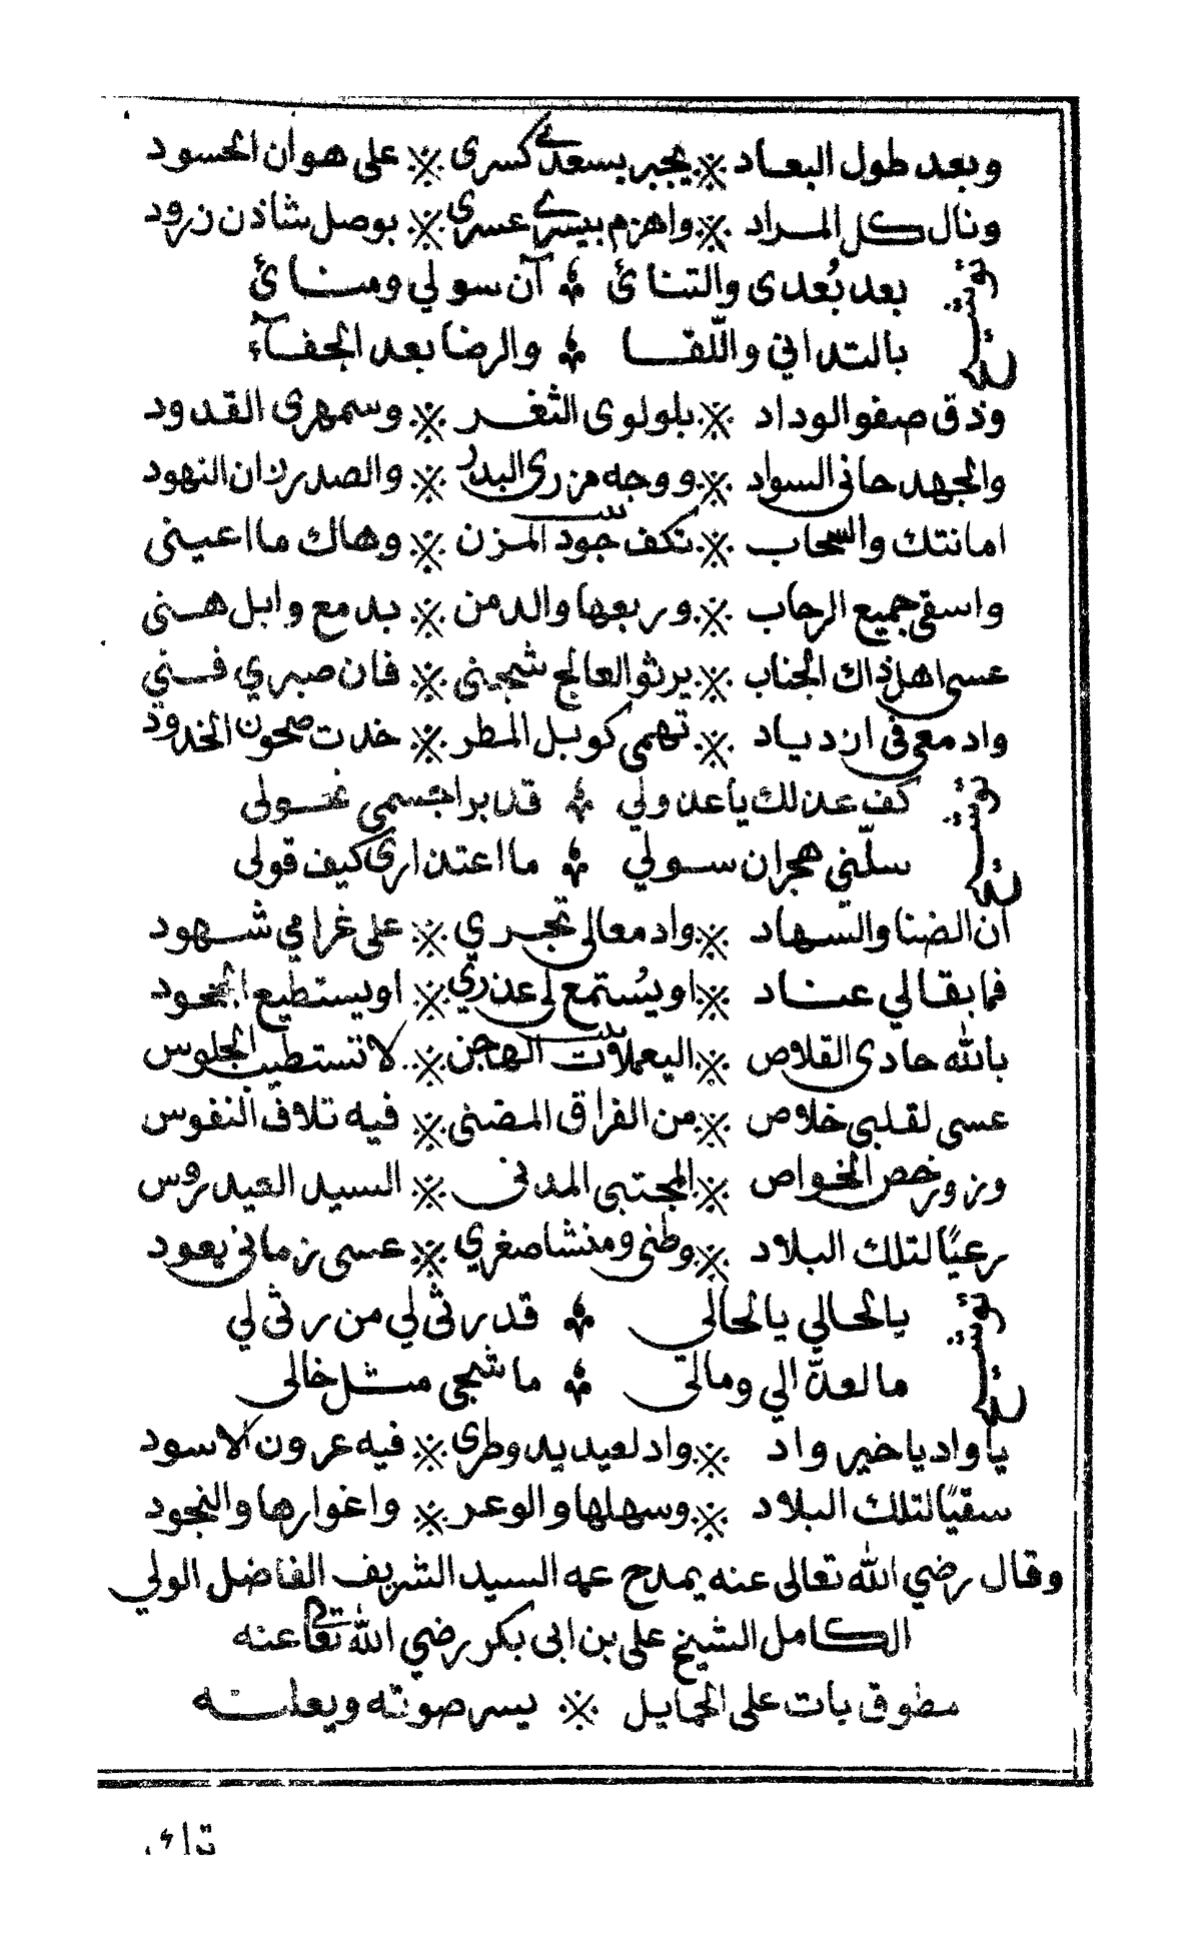 وبعد طول البعاد ※ يجبر بسعدي كسرى ※ على هوان الحسود
ونال كل المراد ※ واهزم بيسري عسرى ※ بوصل شاذن زرود
توشيح
بعد بُعدى والتنائ ؞ آن سولي ومنائ
بالتداني واللّقا ؞ والرضا بعد الجفآء
وذق صفو الوداد ※ بلولوى الثغر ※ وسمهرى القدود
والجهد حانى السواد ※ ووجه مزرى البدر ※ والصدر زان النهود
امانتك والسحاب ※ تكف جود المزن ※ وهاك ما اعينى
واسقى جميع الرحاب ※ وربعها والدمن ※ بدمع وابل هنى
عسى اهل ذاك الجناب ※ يرثو العالج شجنى ※ فان صبري فني
وادمعى فى ازدياد ※ تهمى كوبل المطر ※ خدت صحون الخدود
توشيح
كف عذلك يا عذولي ؞ قد برا جسمى نحولى
سلّني هجران سولي ؞ ما اعتذارى كيف قولى
ان الضنا والسهاد ※ وادمعا لى تجري ※ على غرامي شهود
فما بقا لي عناد ※ او يُستمع لى عذري ※ او يستطيع الجحود
بالله حادى القلاص ※ اليعملات الهجن ※ لا تستطيب الجلوس
عسى لقلبى خلاص ※ من الفراق المضنى ※ فيه تلاف النفوس
وزور خص الخواص ※ المجتبى المدنى ※ السيد العيدروس
رعيًا لتلك البلاد ※ وطنى ومنشا صغري ※ عسى زماني يعود
توشيح
يا لحالي يا لحالى ؞ قد رثى لي من رثى لي
ما لعذّالي ومالى ؞ ما شجى مثل خالى
يا واد يا خير واد ※ واد لعيديد وطرى ※ فيه عرون الاسود
سقيًا لتلك البلاد ※ وسهلها والوعر ※ واغوارها والنجود
وقال رضي الله تعالى عنه يمدح عمه السيد الشريف الفاضل الولي
الكامل الشيخ على بن ابى بكر رضي الله تعالى عنه
مطوق بات على الحمايل ※ يسر صوته ويعلنه